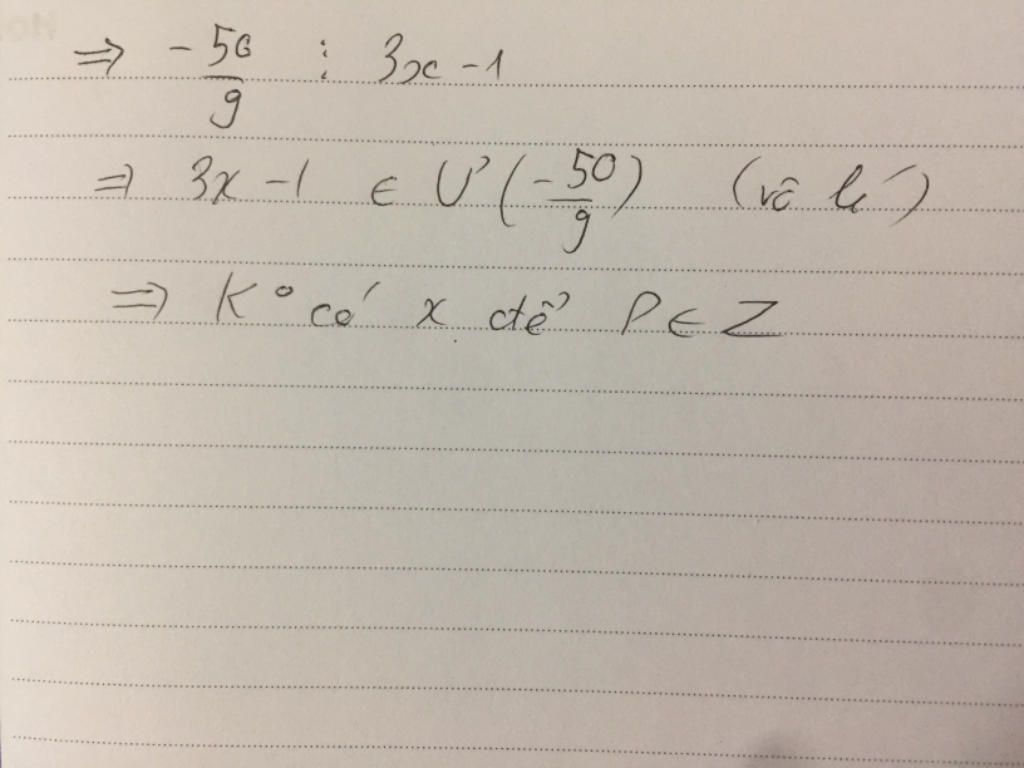 ⇒ -50/9 ⋮ 3x - 1
⇒ 3x - 1 ∈ Ư (-50/9) (vô lí)
⇒ K° có x để P ∈ Z